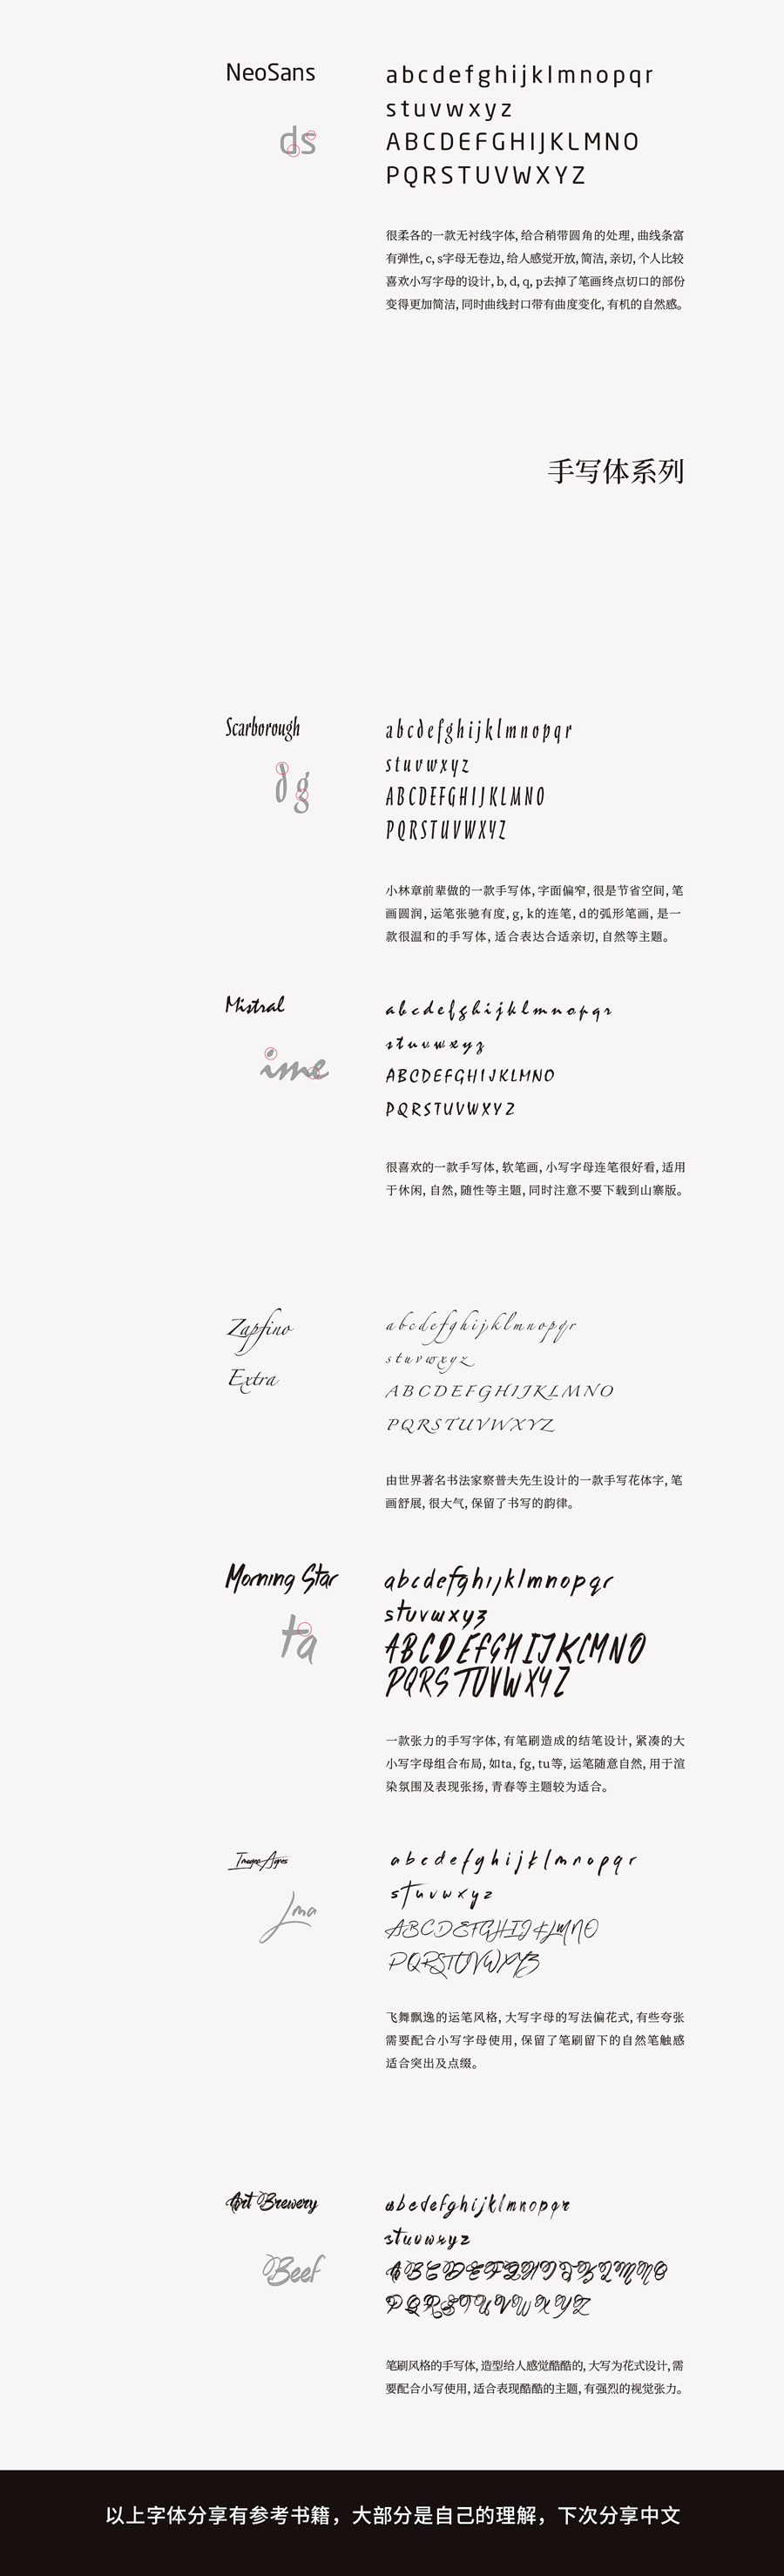 NeoSans
abcdefghijklmnopqr
stuvwxyz
ABCDEFGHIJKLMNO
PQRSTUVWXYZ
ds
很柔各的一款无衬线字体, 给合稍带圆角的处理, 曲线条富
有弹性, c, s字母无卷边, 给人感觉开放, 简洁, 亲切, 个人比较
喜欢小写字母的设计, b, d, q, p去掉了笔画终点切口的部份
变得更加简洁, 同时曲线封口带有曲度变化, 有机的自然感。
手写体系列
Scarborough
abcdefghijklmnopqr
stuvwxyz
ABCDEFGHIJKLMNO
PQRSTUVWXYZ
dg
小林章前辈做的一款手写体, 字面偏窄, 很是节省空间, 笔
画圆润, 运笔张驰有度, g, k的连笔, d的弧形笔画, 是一
款很温和的手写体, 适合表达合适亲切, 自然等主题。
Mistral
abcdefghijklmnopqr
stuvwxyz
ABCDEFGHIJKLMNO
PQRSTUVWXYZ
ime
很喜欢的一款手写体, 软笔画, 小写字母连笔很好看, 适用
于休闲, 自然, 随性等主题, 同时注意不要下载到山寨版。
Zapfino
Extra
abcdefghijklmnopqr
stuvwxyz
ABCDEFGHIJKLMNO
PQRSTUVWXYZ
由世界著名书法家察普夫先生设计的一款手写花体字, 笔
画舒展, 很大气, 保留了书写的韵律。
Morning Star
abcdefghijklmnopqr
stuvwxyz
ABCDEFGHIJKLMNO
PQRSTUVWXYZ
ta
一款张力的手写字体, 有笔刷造成的结笔设计, 紧凑的大
小写字母组合布局, 如ta, fg, tu等, 运笔随意自然, 用于渲
染氛围及表现张扬, 青春等主题较为适合。
abcdefghijklmnopqr
stuvwxyz
ABCDEFGHIJKLMNO
PQRSTUVWXYZ
Lma
飞舞飘逸的运笔风格, 大写字母的写法偏花式, 有些夸张
需要配合小写字母使用, 保留了笔刷留下的自然笔触感
适合突出及点缀。
Art Brewery
abcdefghijklmnopqr
stuvwxyz
ABCDEFGHIJKLMNO
PQRSTUVWXYZ
Beef
笔刷风格的手写体, 造型给人感觉酷酷的, 大写为花式设计, 需
要配合小写使用, 适合表现酷酷的主题, 有强烈的视觉张力。
以上字体分享有参考书籍，大部分是自己的理解，下次分享中文